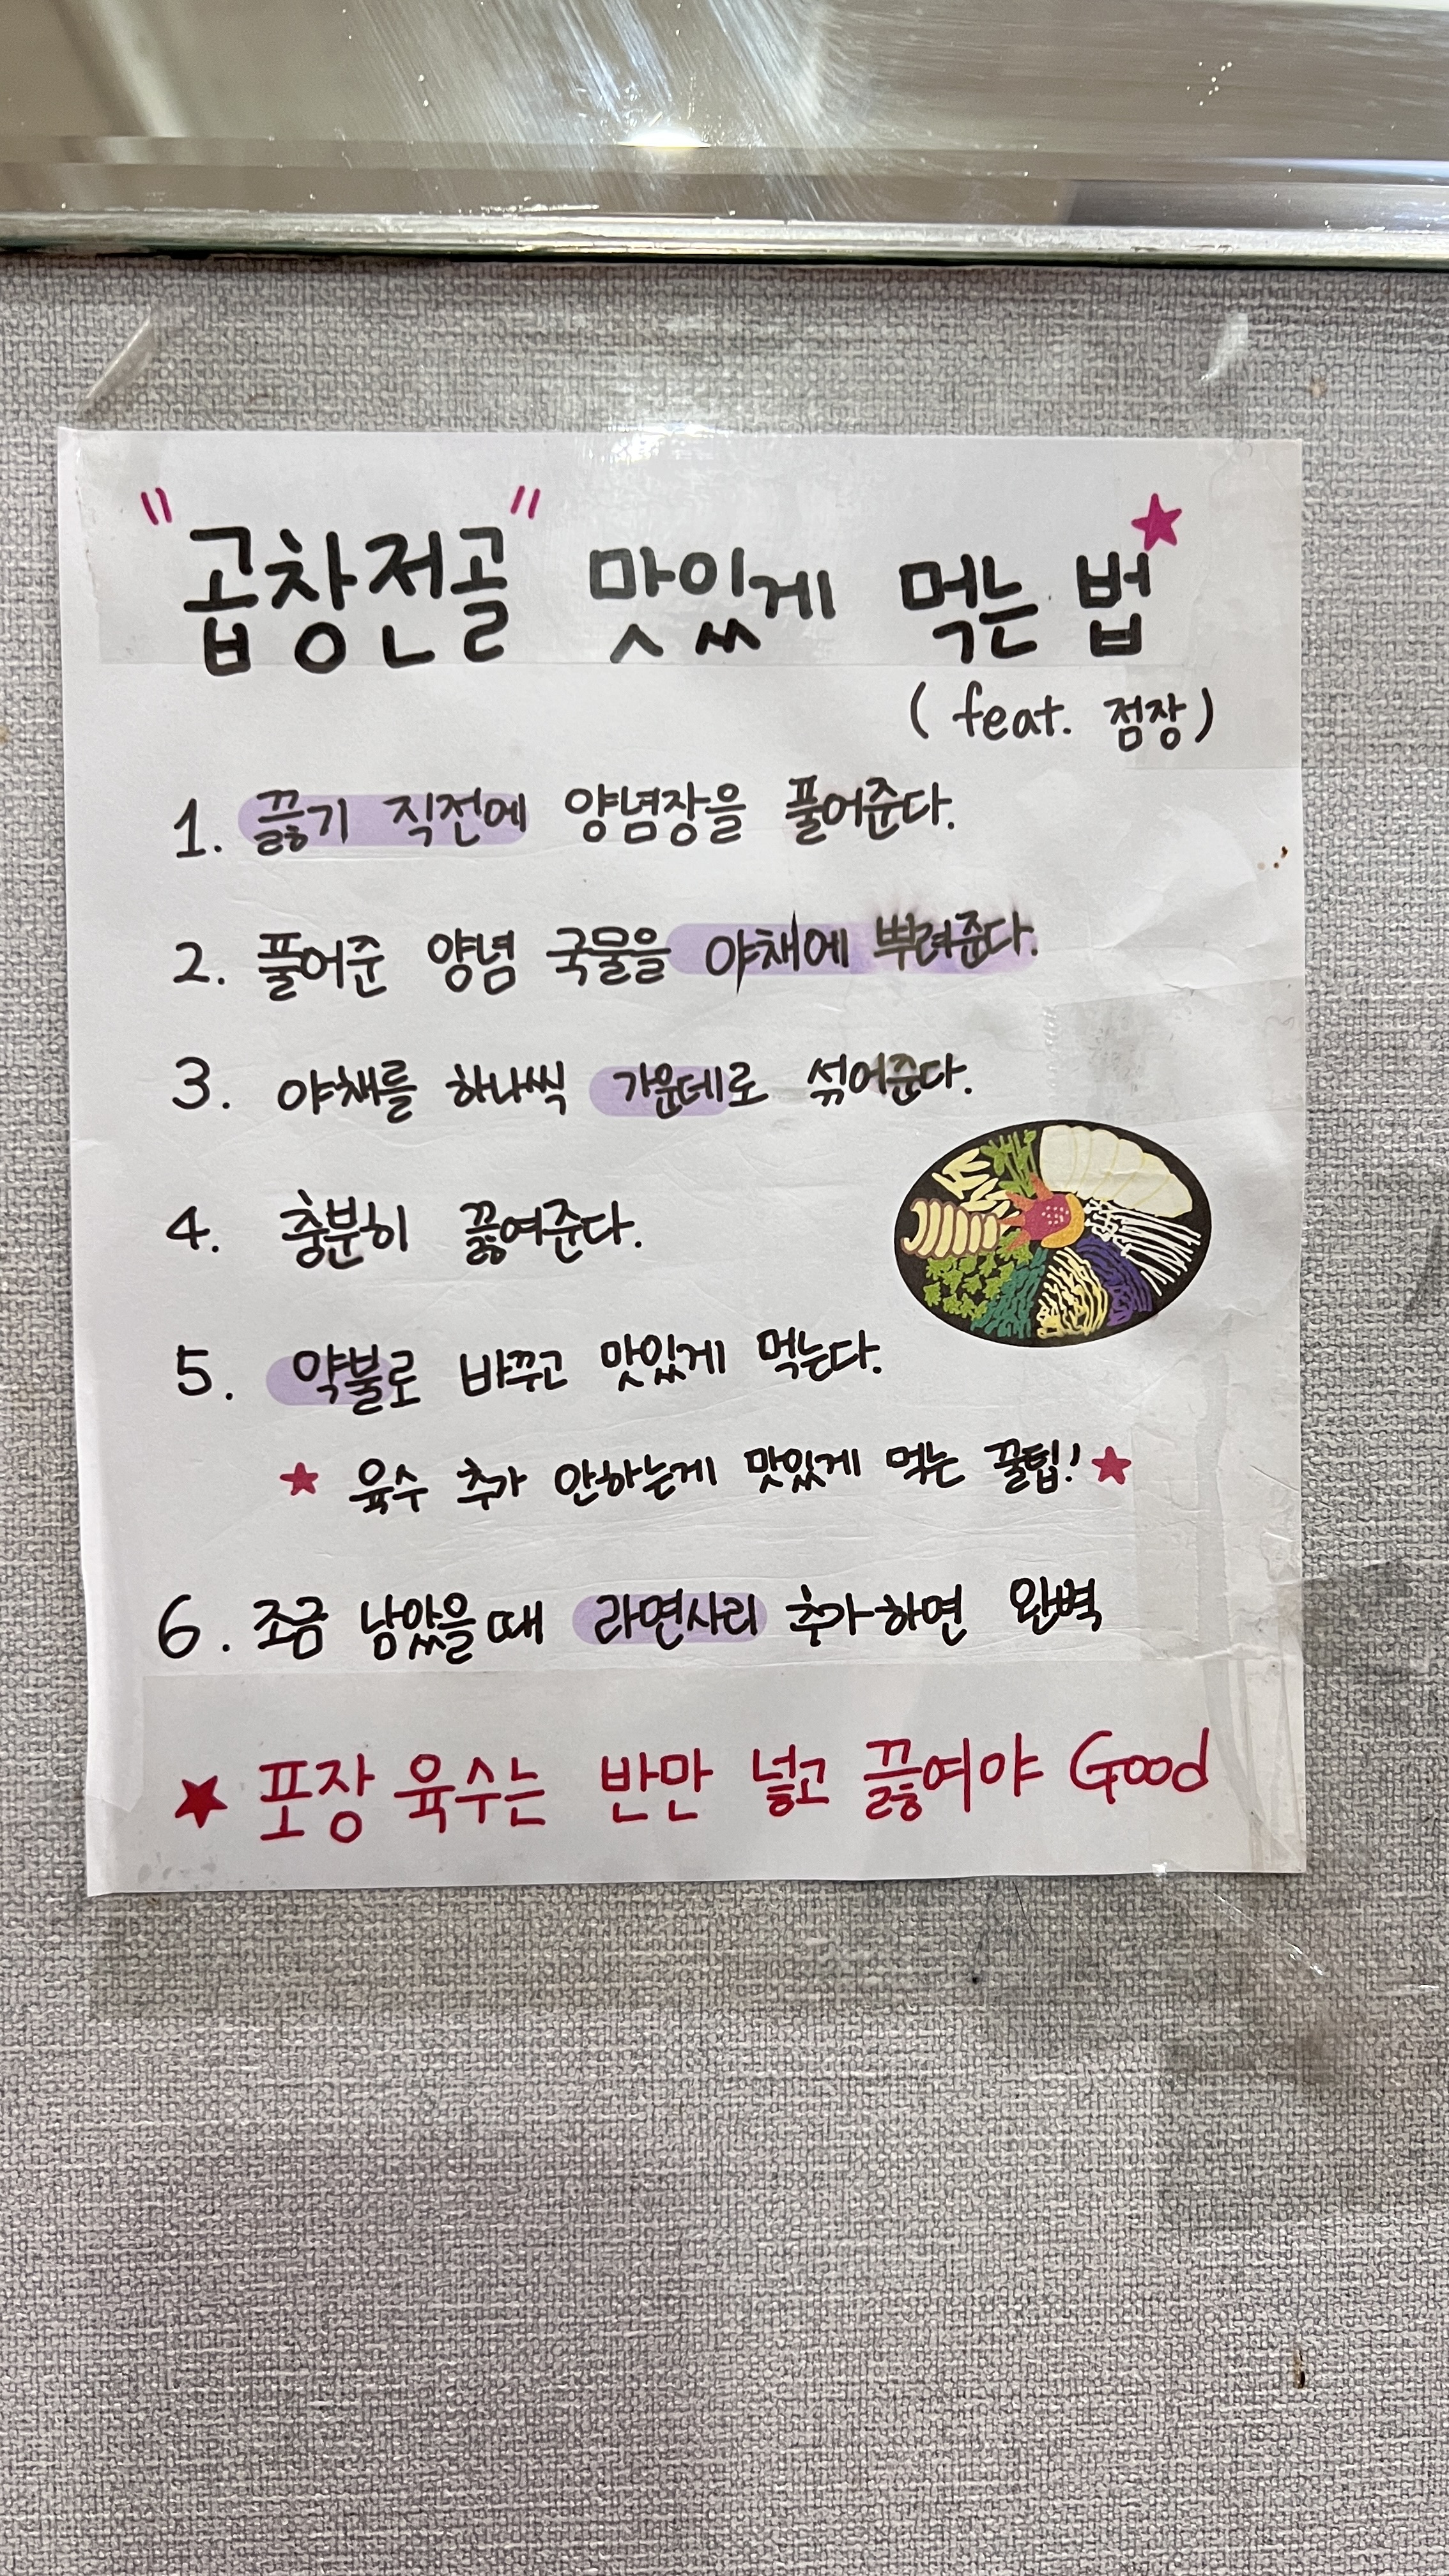 "곱창전골" 맛있게 먹는 법
( feat. 점장 )
1. 끓기 직전에 양념장을 풀어준다.
2. 풀어준 양념 국물을 야채에 뿌려준다.
3. 야채를 하나씩 가운데로 섞어준다.
4. 충분히 끓여준다.
5. 약불로 바꾸고 맛있게 먹는다.
★ 육수 추가 안하는게 맛있게 먹는 꿀팁! ★
6. 조금 남았을때 라면사리 추가하면 완벽
★ 포장 육수는 반만 넣고 끓여야 Good